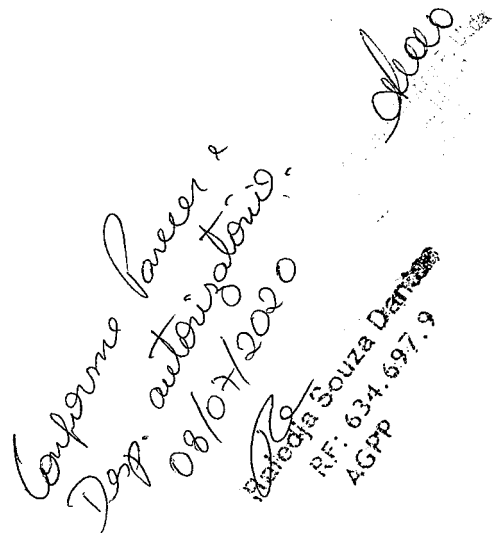 Conforme Parecer e
Desp. autorizatório:
08/07/2020
Souza
RF: 634.697.9
AGPP